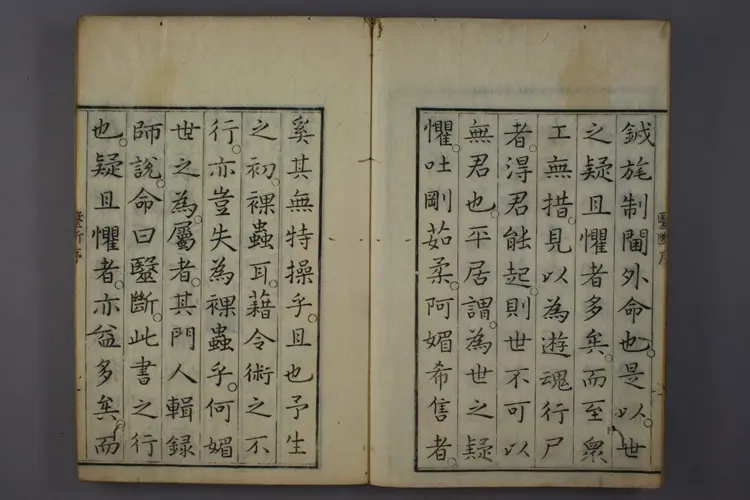 鉞旄制閫外命也。是以世
之疑且懼者多矣。而至衆
工無措。見以為遊魂行尸
者。得君能起。則世不可以
無君也。平居謂。為世之疑
懼。吐剛茹柔。阿媚希售者。
奚其無特操乎。且也予生
之初。裸蟲耳。藉令術之不
行。亦豈失為裸蟲乎。何媚
世之為。屬者。其門人輯録
師說。命曰毉斷。此書之行
也。疑且懼者。亦益多矣。而
毉斷序